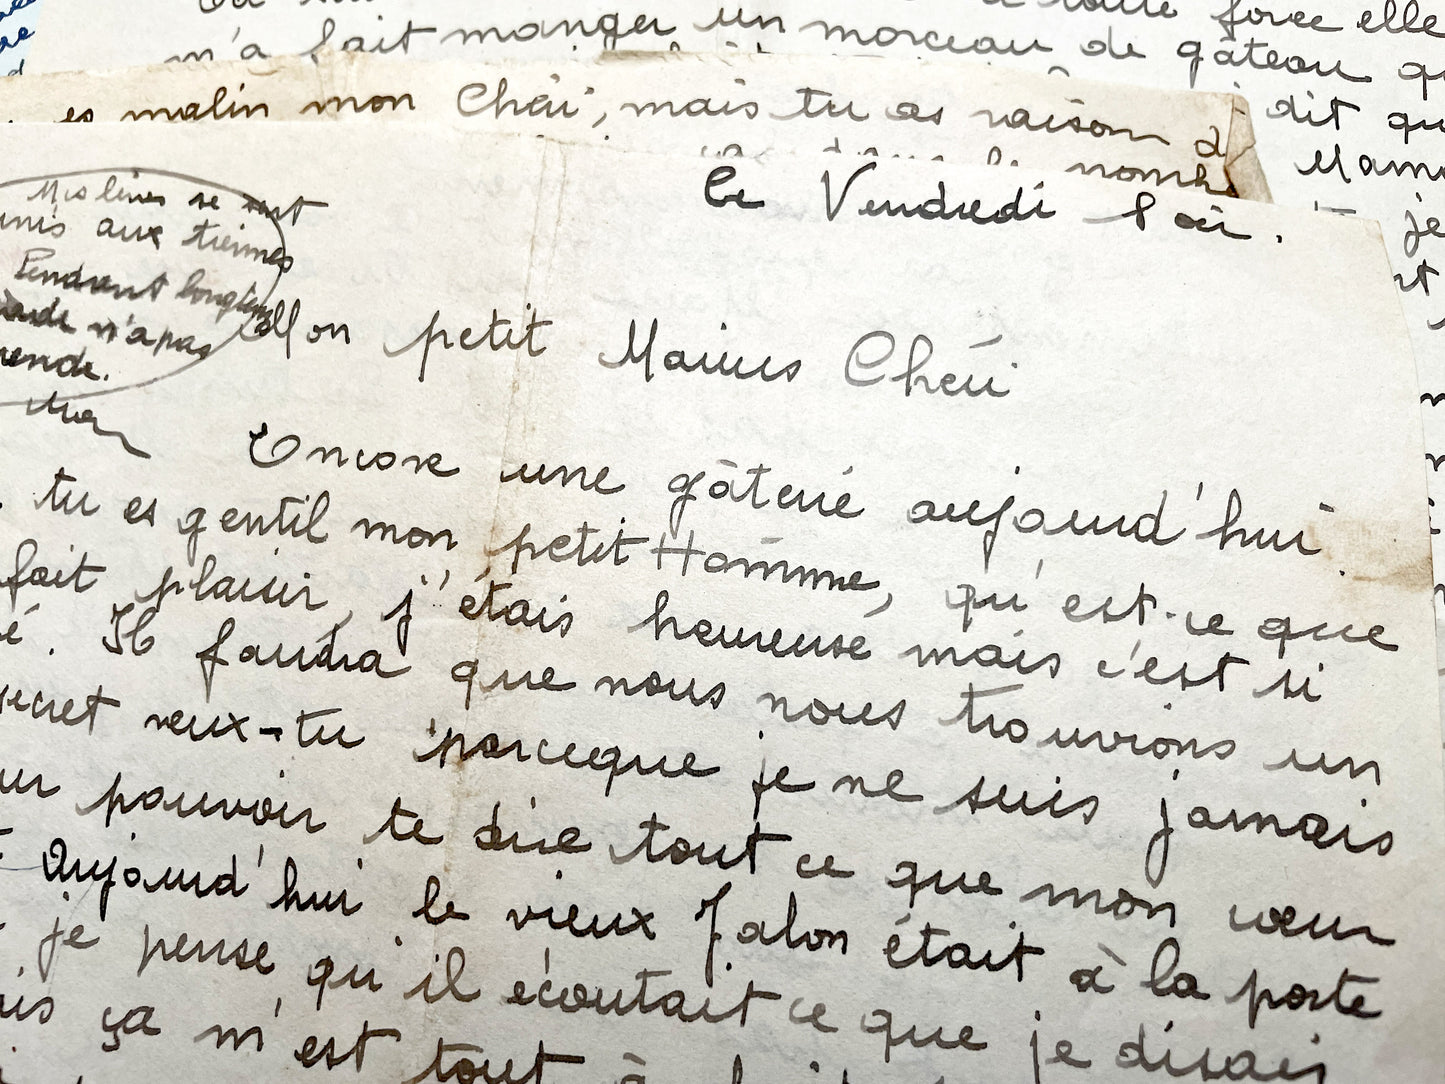 à toute force elle
m'a fait manger un morceau de gâteau qu
dit que
Mama
je
es malin mon Chéri, mais tu as raison d
nombre
Le Vendredi soir.
Mes lèvres se sont
unis aux tiennes
Pendant longtemps
n'a pas
Mon petit Marius Chéri
Encore une gâterie aujourd'hui
tu es gentil mon petit Homme, qu'est-ce que
fait plaisir, j'étais heureuse mais c'est si
é. Il faudra que nous nous trouvions un
secret veux-tu parceque je ne suis jamais
pouvoir te dire tout ce que mon cœur
Aujourd'hui le vieux Jalon était à la porte
je pense qu'il écoutait ce que je disais
ça m'est tout à